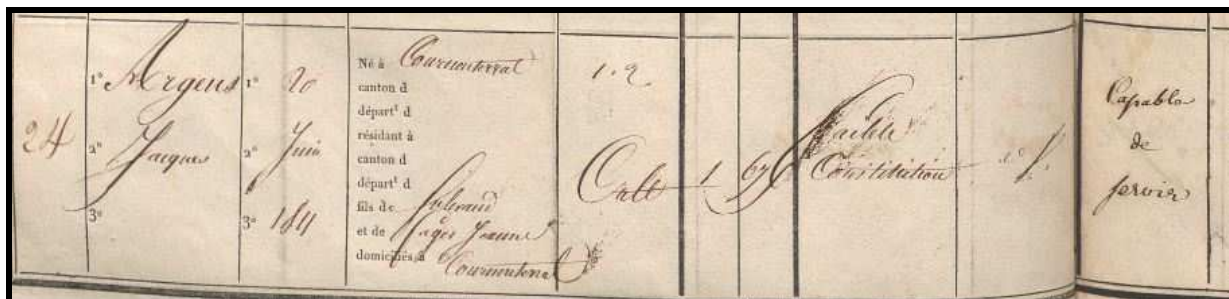 24
1° Argens
2° Jacques
3°
1° 20
2° Juin
3° 1811
Né à Cournonterral
canton d
départ^t d
résidant à
canton d
départ^t d
fils de
et de Jeanne
domiciliés à Cournonterral
1. 2.
Cult
1
676
Faible
Constitution
Capable
de
servir